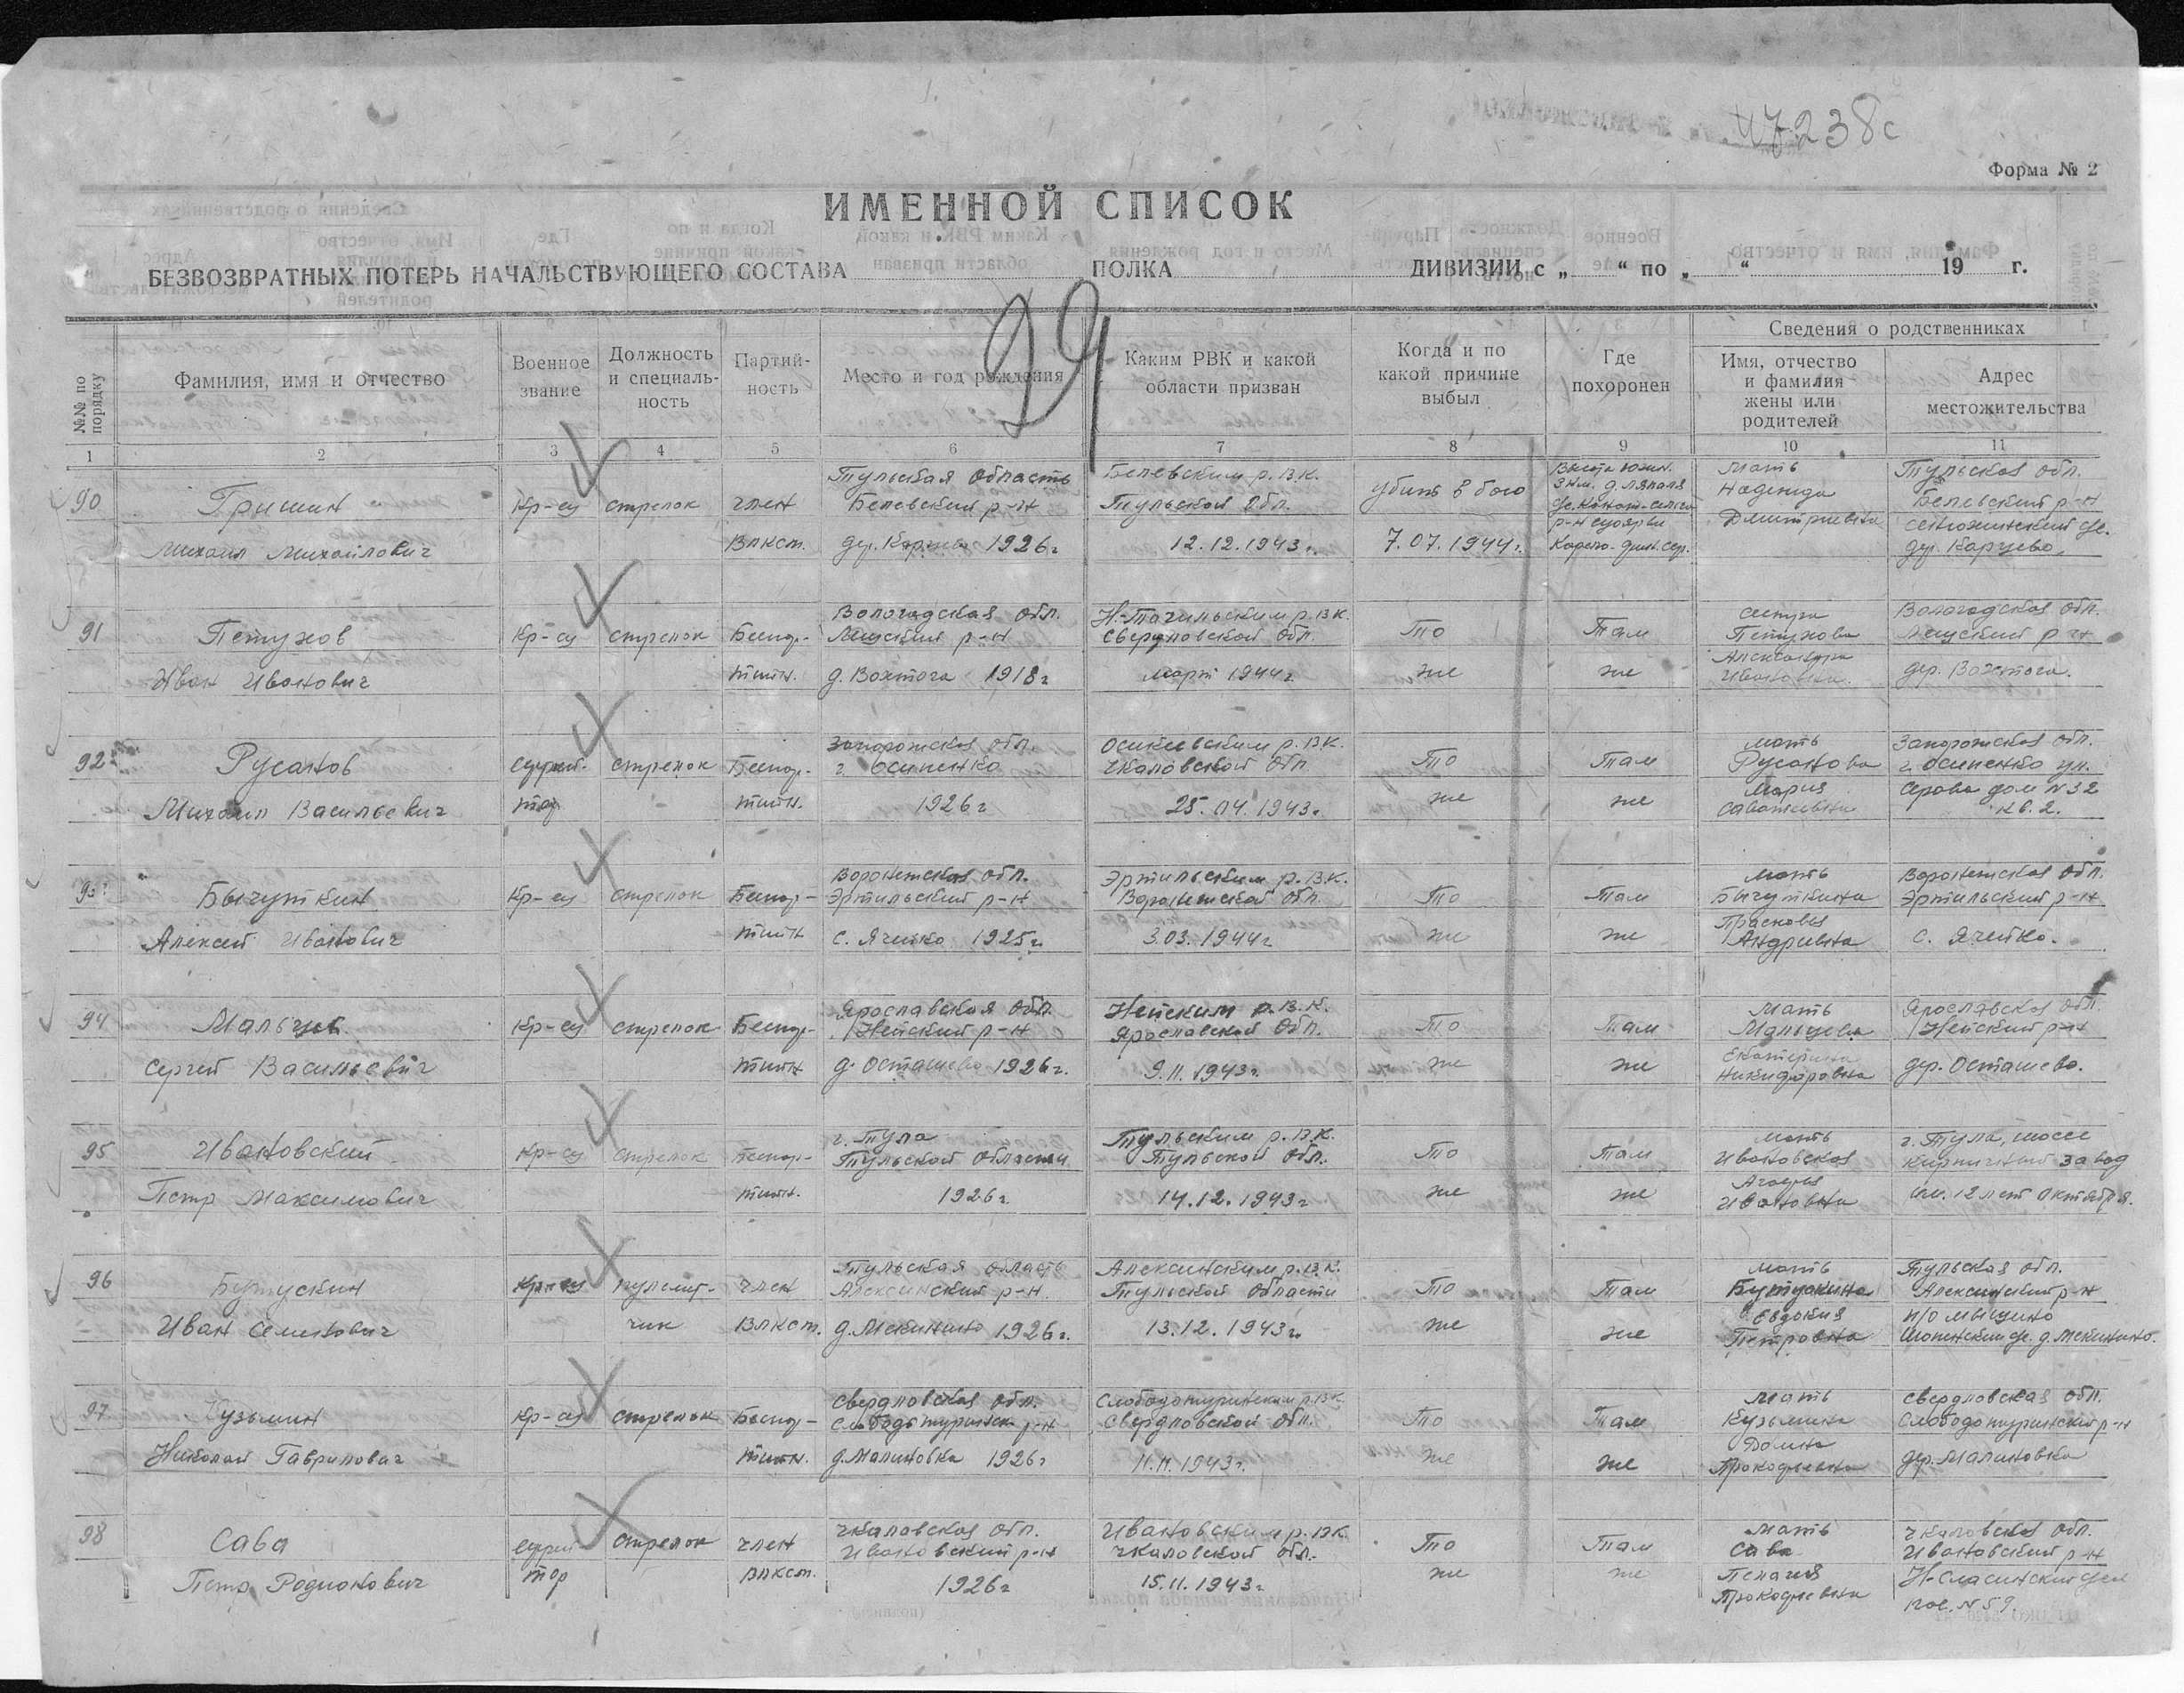 47238с
Форма № 2
ИМЕННОЙ СПИСОК
БЕЗВОЗВРАТНЫХ ПОТЕРЬ НАЧАЛЬСТВУЮЩЕГО СОСТАВА ПОЛКА ДИВИЗИИ с „ “ по „ “ 19 г.
29
№№ по порядку
Фамилия, имя и отчество
Военное звание
Должность и специаль-ность
Партий-ность
Место и год рождения
Каким РВК и какой области призван
Когда и по какой причине выбыл
Где похоронен
Сведения о родственниках
Имя, отчество и фамилия жены или родителей
Адрес местожительства
1 2 3 4 5 6 7 8 9 10 11
90 Гришин Кр-ец стрелок член
Михаил Михайлович Влксм.
Тульская область
Белевский р-н
дер. 1926г
Белевским р.в.к.
Тульской обл.
12.12.1943г.
убит в бою
7.07.1944г.
Мать
Надежда
Дмитриевна
Тульская обл.
Белевский р-н
дер. Карчево
91 Петухов Кр-ец стрелок Беспар-
Иван Иванович тийн.
Вологодская обл.
р-н
д. Вохтога 1918г
Н-Тагильским р.в.к.
Свердловской обл.
март 1944г.
То
же
Там
же
Петухова
Александра
Ивановна
Вологодская обл.
р-н
дер. Вохтога.
92 Русанов Ефрей- стрелок Беспар-
Михаил Васильевич тор тийн.
Запорожская обл.
г. Осипенко
1926г
р.в.к.
Чкаловской обл.
25.04.1943г.
То
же
Там
же
мать
Русанова
Мария
Запорожская обл.
г. Осипенко ул.
Серова дом №32
кв. 2.
93 Бычуткин Кр-ец стрелок Беспар-
Алексей Иванович тийн
Воронежская обл.
Эртильский р-н
с. Ячейко 1925г.
Эртильским р.в.к.
Воронежской обл.
3.03.1944г
То
же
Там
же
мать
Бычуткина
Прасковья
Андреевна
Воронежская обл.
Эртильский р-н
с. Ячейко.
94 Мальцев Кр-ец стрелок Беспар-
Сергей Васильевич тийн
Ярославская обл.
Нейский р-н
д. Осташево 1926г.
Нейским р.в.к.
Ярославской обл.
9.11.1943г.
То
же
Там
же
Мать
Мальцева
Екатерина
Никифоровна
Ярославская обл.
Нейский р-н
дер. Осташево.
95 Ивановский Кр-ец стрелок Беспар-
Петр Максимович тийн.
г. Тула
Тульской области
1926г.
Тульским р.в.к.
Тульской обл.
14.12.1943г
То
же
Там
же
мать
Ивановская
Ивановна
г. Тула, шоссе
кирпичный завод
им. 12 лет Октября.
96 Бутускин Кр-ец пулемет- член
Иван Семенович чик Влксм.
Тульская область
Алексинский р-н
д. Мекинино 1926г.
Алексинским р.в.к.
Тульской области
13.12.1943г.
То
же
Там
же
мать
Бутускина
Евдокия
Петровна
Тульская обл.
Алексинский р-н
п/о Мышино
д. Мекинино.
97 Кузьмин Кр-ец стрелок Беспар-
Николай Гаврилович тийн.
Свердловская обл.
Слободотуринск р-н
д. Малиновка 1926г
Слободотуринским р.в.к.
Свердловской обл.
11.11.1943г.
То
же
Там
же
Мать
Кузьмина
Домна
Прокофьевна
Свердловская обл.
Слободотуринский р-н
дер. Малиновка
98 Сава ефрей- стрелок член
Петр Родионович тор влксм.
Чкаловская обл.
Ивановский р-н
1926г
Ивановским р.в.к.
Чкаловской обл.
15.11.1943г
То
же
Там
же
Мать
Сава
Пелагия
Прокофьевна
Чкаловская обл.
Ивановский р-н
пос. №59.